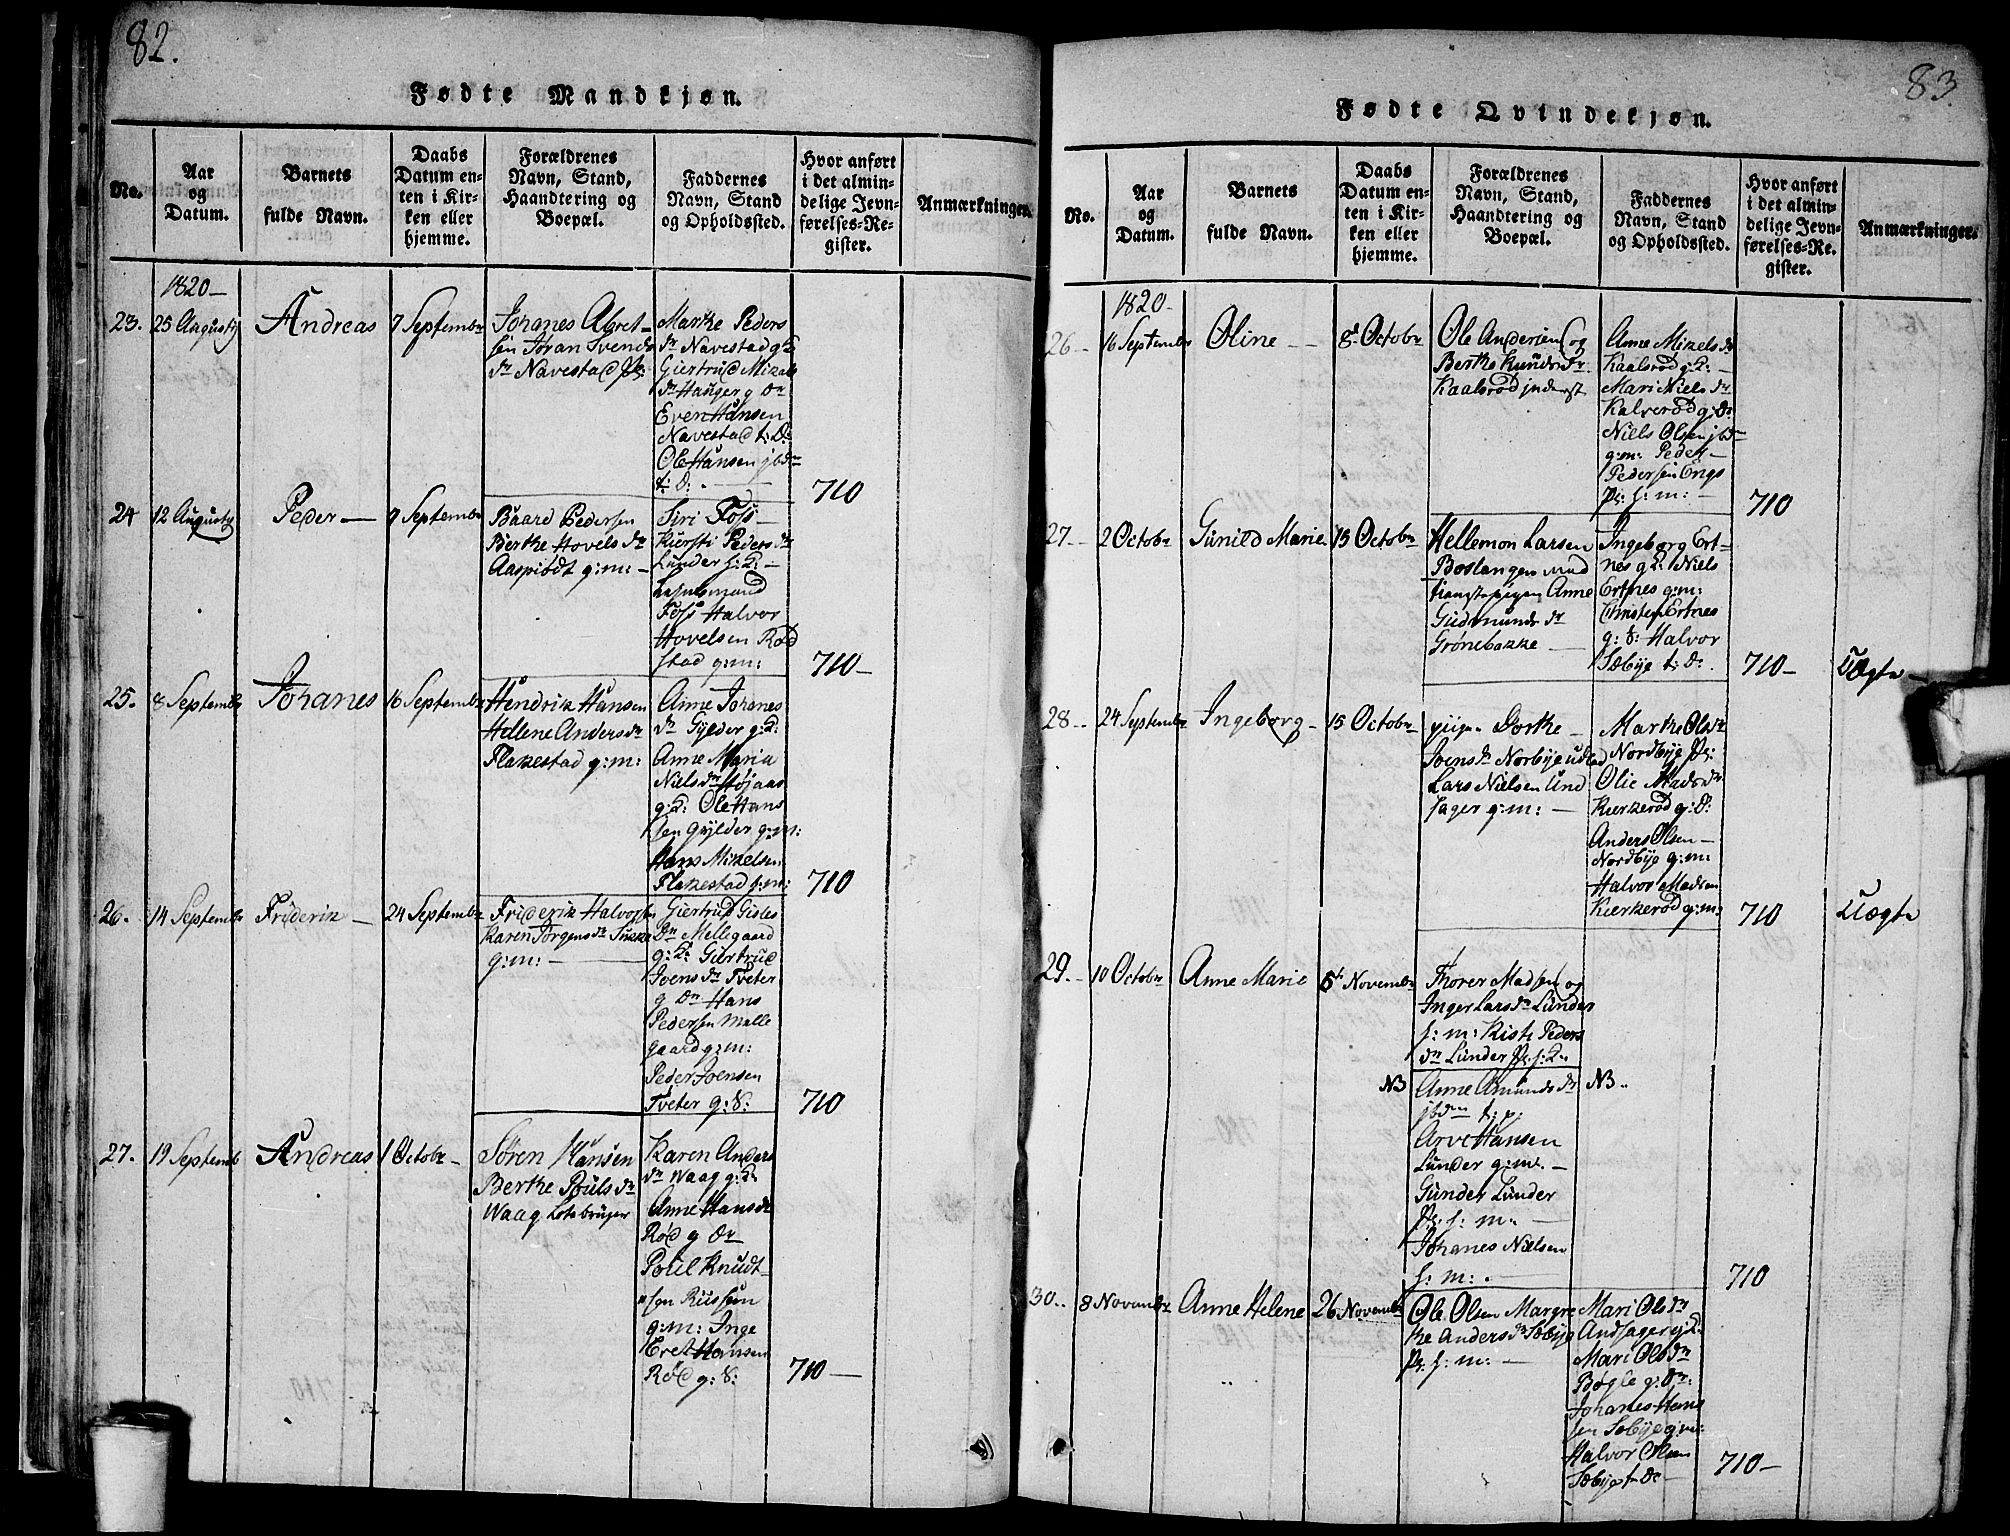 82.
Fødte Mandkjøn.
No.
Aar
og
Datum.
Barnets
fulde Navn.
Daabs
Datum en-
ten i Kir-
ken eller
hjemme.
Forældrenes
Navn, Stand,
Haandtering og
Boepæl.
Faddernes
Navn, Stand
og Opholdssted.
Hvor anført
i det almin-
delige Jevn-
førelses-Re-
gister.
Anmærkninger.
1820
23.
25 Augusty
Andreas
7 Septembr
Johanes Abret-
sen Jøran Svends
dr Navestad
Marthe Peders
dr Navestad
Giertrud Mikels
dr Hauger g Dr
Even Hansen
Navestad t: D:
Ole Hansen ibdm
t: d:
710
24
12 Augusty
Peder
9 Septembr
Baard Pedersen
Berthe Hovels dr
Aaspiødt g:m:
Siri Foss
Kiersti Peders dr
Lunder
Foss Halvor
Hovelsen Rød
stad g:m:
710
25.
8 Septembr
Johanes
16 Septembr
Hendrik Hansen
Hellene Anders dr
Flakestad g:m:
Anne Johanes
dr Gylder
Anne Maria
Niels dr Højaas
Ole Hans
sen Gylder g:m:
Hans Mikelsen
Flakestad g:m:
710
26.
14 Septembr
Friderik
24 Septembr
Friderik Halvorsen
Karen Jørgens dr
g:m:
Giertrud Gisles
Dr Mellegaard
Giertrud
Joens dr Tveter
g Dr Hans
Pedersen Melle
gaard g:m:
Peder Joensen
Tveter g: S:
710
27.
19 Septemb
Andreas
1 Octobr
Søren Hansen
Berthe Pouls dr
Waag
Karen Anders
dr Waag
Anne Hans dr
Rød g Dr
Poul Knudt-
sen Riissen
g:m: Inge
Bret Hansen
Rød g: S:
710
83.
Fødte Qvindekjøn.
No.
Aar
og
Datum.
Barnets
fulde Navn.
Daabs
Datum en-
ten i Kir-
ken eller
hjemme.
Forældrenes
Navn, Stand,
Haandtering og
Boepæl.
Faddernes
Navn, Stand
og Opholdssted.
Hvor anført
i det almin-
delige Jevn-
førelses-Re-
gister.
Anmærkninger.
1820
26
16 Septembr
Oline
8 Octobr
Ole Andersen og
Berthe Knuds dr
Kaalsrød inderst
Anne Mikels dr
Kaalsrød
Mari Niels dr
Kalverød g: D:
Niels Olsen ibdm
g:m: Peder
Pedersen Engs
710
27
2 Octobr
Gunild Marie
15 Octobr
Hellemon Larsen
Boslangen med
Anne
Gudmunds dr
Grønebakke
Ingeborg Ert-
nes Niels
Ertnes g:m:
Christen Ertnes
g: S: Halvor
Sæbye t: D:
710
Uægte
28
24 Septembr
Ingeborg
15 Octobr
pigen Dorthe
Joens dr Norbye
Lars Nielsen Und
sager g:m:
Marthe Ols dr
Nordbye
Olie Mads dr
Kierkerød g: D:
Anders Olsen
Nordbye g:m:
Halvor Madsen
Kierkerød g:m:
710
Uægte
29
10 Octobr
Anne Marie
5te Novembr
Thorer Madsen og
Inger Lars dr Lunder
Kisti Peders
dr Lunder
NB
Anne Amunds dr
ibdm t: p:
Arve Hansen
Lunder g:m:
Gunder Lunder
Johanes Nielsen
NB
710
30
8 Novembr
Anne Helene
26 Novembr
Ole Olsen Margre
the Anders dr Sæbye
Mari Ols dr
Mari Ols dr
Bøgle g: D:
Johanes Hans
sen Sæbye g:m:
Halvor Olsen
Sæbye t: D:
710